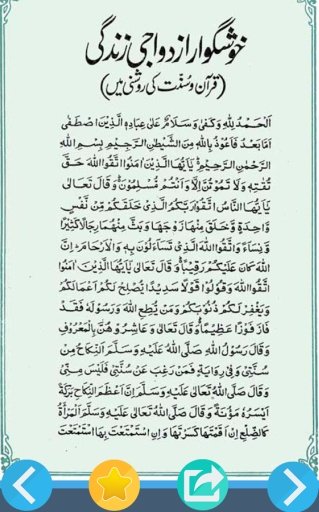 خوشگوار ازدواجی زندگی
(قرآن و سنّت کی روشنی میں)
اَلْحَمْدُ لِلّٰهِ وَكَفٰى وَسَلَامٌ عَلٰى عِبَادِهِ الَّذِيْنَ اصْطَفٰى
اَمَّا بَعْدُ فَاَعُوْذُ بِاللّٰهِ مِنَ الشَّيْطٰنِ الرَّجِيْمِ بِسْمِ اللّٰهِ
الرَّحْمٰنِ الرَّحِيْمِ يٰاَيُّهَا الَّذِيْنَ اٰمَنُوا اتَّقُوا اللّٰهَ حَقَّ
تُقٰتِهٖ وَلَا تَمُوْتُنَّ اِلَّا وَاَنْتُمْ مُّسْلِمُوْنَ وَقَالَ تَعَالٰى
يٰاَيُّهَا النَّاسُ اتَّقُوْا رَبَّكُمُ الَّذِيْ خَلَقَكُمْ مِّنْ نَّفْسٍ
وَّاحِدَةٍ وَّخَلَقَ مِنْهَا زَوْجَهَا وَبَثَّ مِنْهُمَا رِجَالًا كَثِيْرًا
وَّنِسَآءً وَاتَّقُوا اللّٰهَ الَّذِيْ تَسَآءَلُوْنَ بِهٖ وَالْاَرْحَامَ اِنَّ
اللّٰهَ كَانَ عَلَيْكُمْ رَقِيْبًا وَقَالَ تَعَالٰى يٰاَيُّهَا الَّذِيْنَ اٰمَنُوا
اتَّقُوا اللّٰهَ وَقُوْلُوْا قَوْلًا سَدِيْدًا يُّصْلِحْ لَكُمْ اَعْمَالَكُمْ
وَيَغْفِرْ لَكُمْ ذُنُوْبَكُمْ وَمَنْ يُّطِعِ اللّٰهَ وَرَسُوْلَهٗ فَقَدْ
فَازَ فَوْزًا عَظِيْمًا وَقَالَ تَعَالٰى وَعَاشِرُوْهُنَّ بِالْمَعْرُوْفِ
وَقَالَ رَسُوْلُ اللّٰهِ صَلَّى اللّٰهُ عَلَيْهِ وَسَلَّمَ اَلنِّكَاحُ مِنْ
سُنَّتِيْ وَفِيْ رِوَايَةٍ فَمَنْ رَغِبَ عَنْ سُنَّتِيْ فَلَيْسَ مِنِّيْ
وَقَالَ صَلَّى اللّٰهُ تَعَالٰى عَلَيْهِ وَسَلَّمَ اِنَّ اَعْظَمَ النِّكَاحِ بَرَكَةً
اَيْسَرُهٗ مَؤُنَةً وَقَالَ صَلَّى اللّٰهُ تَعَالٰى عَلَيْهِ وَسَلَّمَ اَلْمَرْأَةُ
كَالضِّلَعِ اِنْ اَقَمْتَهَا كَسَرْتَهَا وَاِنِ اسْتَمْتَعْتَ بِهَا اسْتَمْتَعْتَ